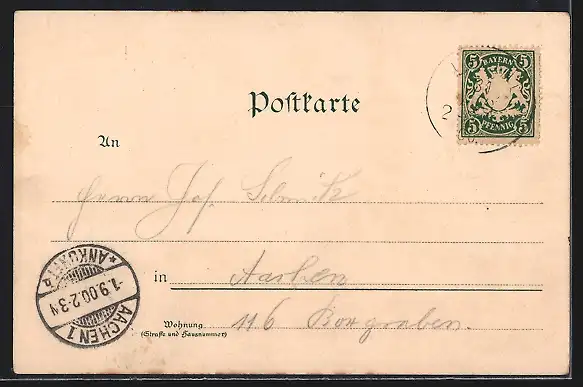 5 BAYERN 5
5 PFENNIG 5
Postkarte
An
Herrn Jos. Schmitz
in Aachen
Wohnung 116 Borngraben.
(Straße und Hausnummer)
* ANKUNFT *
1.9.00.2-3N
AACHEN 1